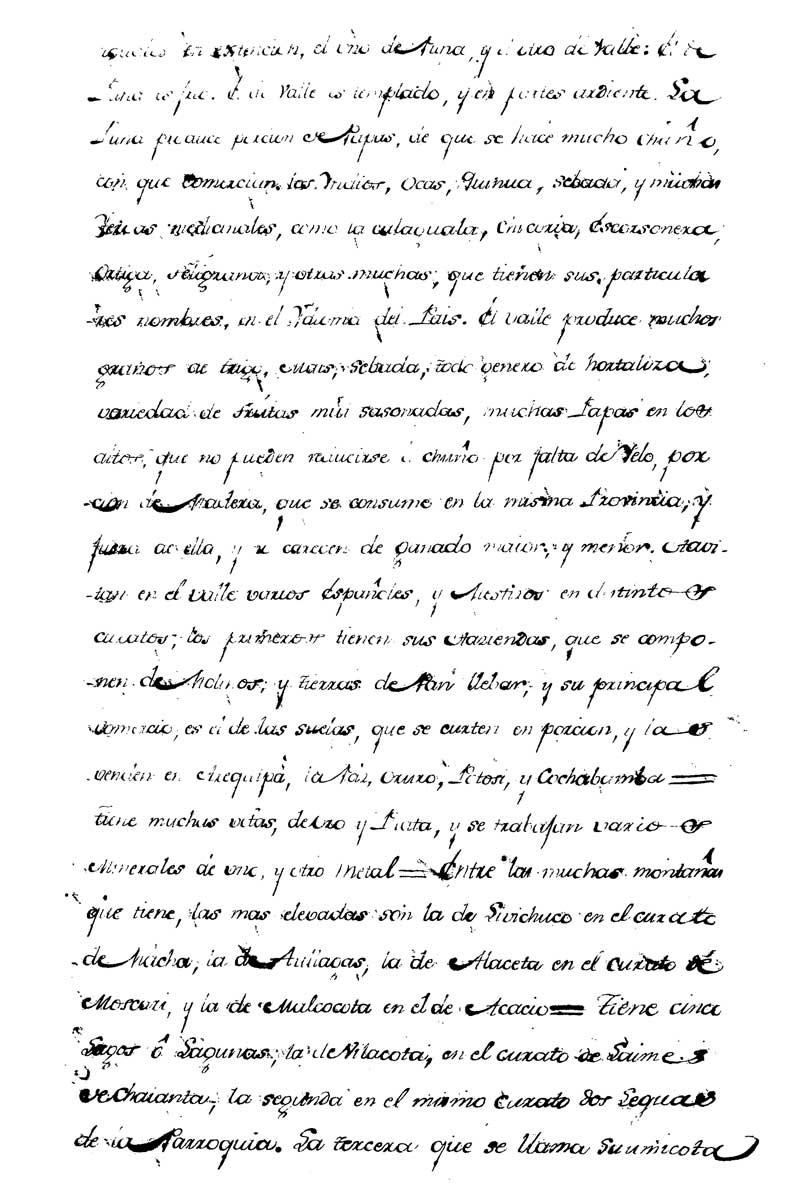 en extencion, el uno de Puna, y el otro de Valle: El de
Puna es frio. El de Valle es templado, y en partes ardiente. La
Puna produce porcion de Papas, de que se hace mucho chuño,
con que comercian los Yndios, Ocas, Quinua, Sebada, y muchas
Yervas medicinales, como la culaquala, Cincoria, Escorsonera,
Ortiga, y otras muchas, que tienen sus particula
-res nombres, en el Ydioma del Pais. El valle produce muchos
granos de trigo, mais, sebada, todo genero de hortaliza,
variedad de Frutas mui sasonadas, muchas Papas en los
altos, que no pueden reducirse á chuño por falta de Yelo, por
-cion de Madera, que se consume en la misma Provincia, y
fuera de ella, y no carecen de ganado maior, y menor. Havi-
-tan en el valle varios Españoles, y Mestisos en distintos
curatos; los primeros tienen sus Haziendas, que se compo-
-nen de Molinos, y tierras de Pan llebar, y su principal
comercio, es el de las suelas, que se curten en porcion, y las
venden en Arequipa, la Paz, Oruro, Potosi, y Cochabamba =
tiene muchas vetas, de Oro y Plata, y se trabajan varios
Minerales de uno, y otro Metal = Entre las muchas montañas
que tiene, las mas elevadas son la de Livichuco en el curato
de Macha, la de Aullagas, la de Alaceta en el curato de
Moscari, y la de Malcocota en el de Acacio = Tiene cinco
Lagos ó Lagunas, la de Vilacota, en el curato de Laimes
de Chaianta, la segunda en el mismo curato dos Leguas
de la Parroquia. La tercera que se llama Suumicota